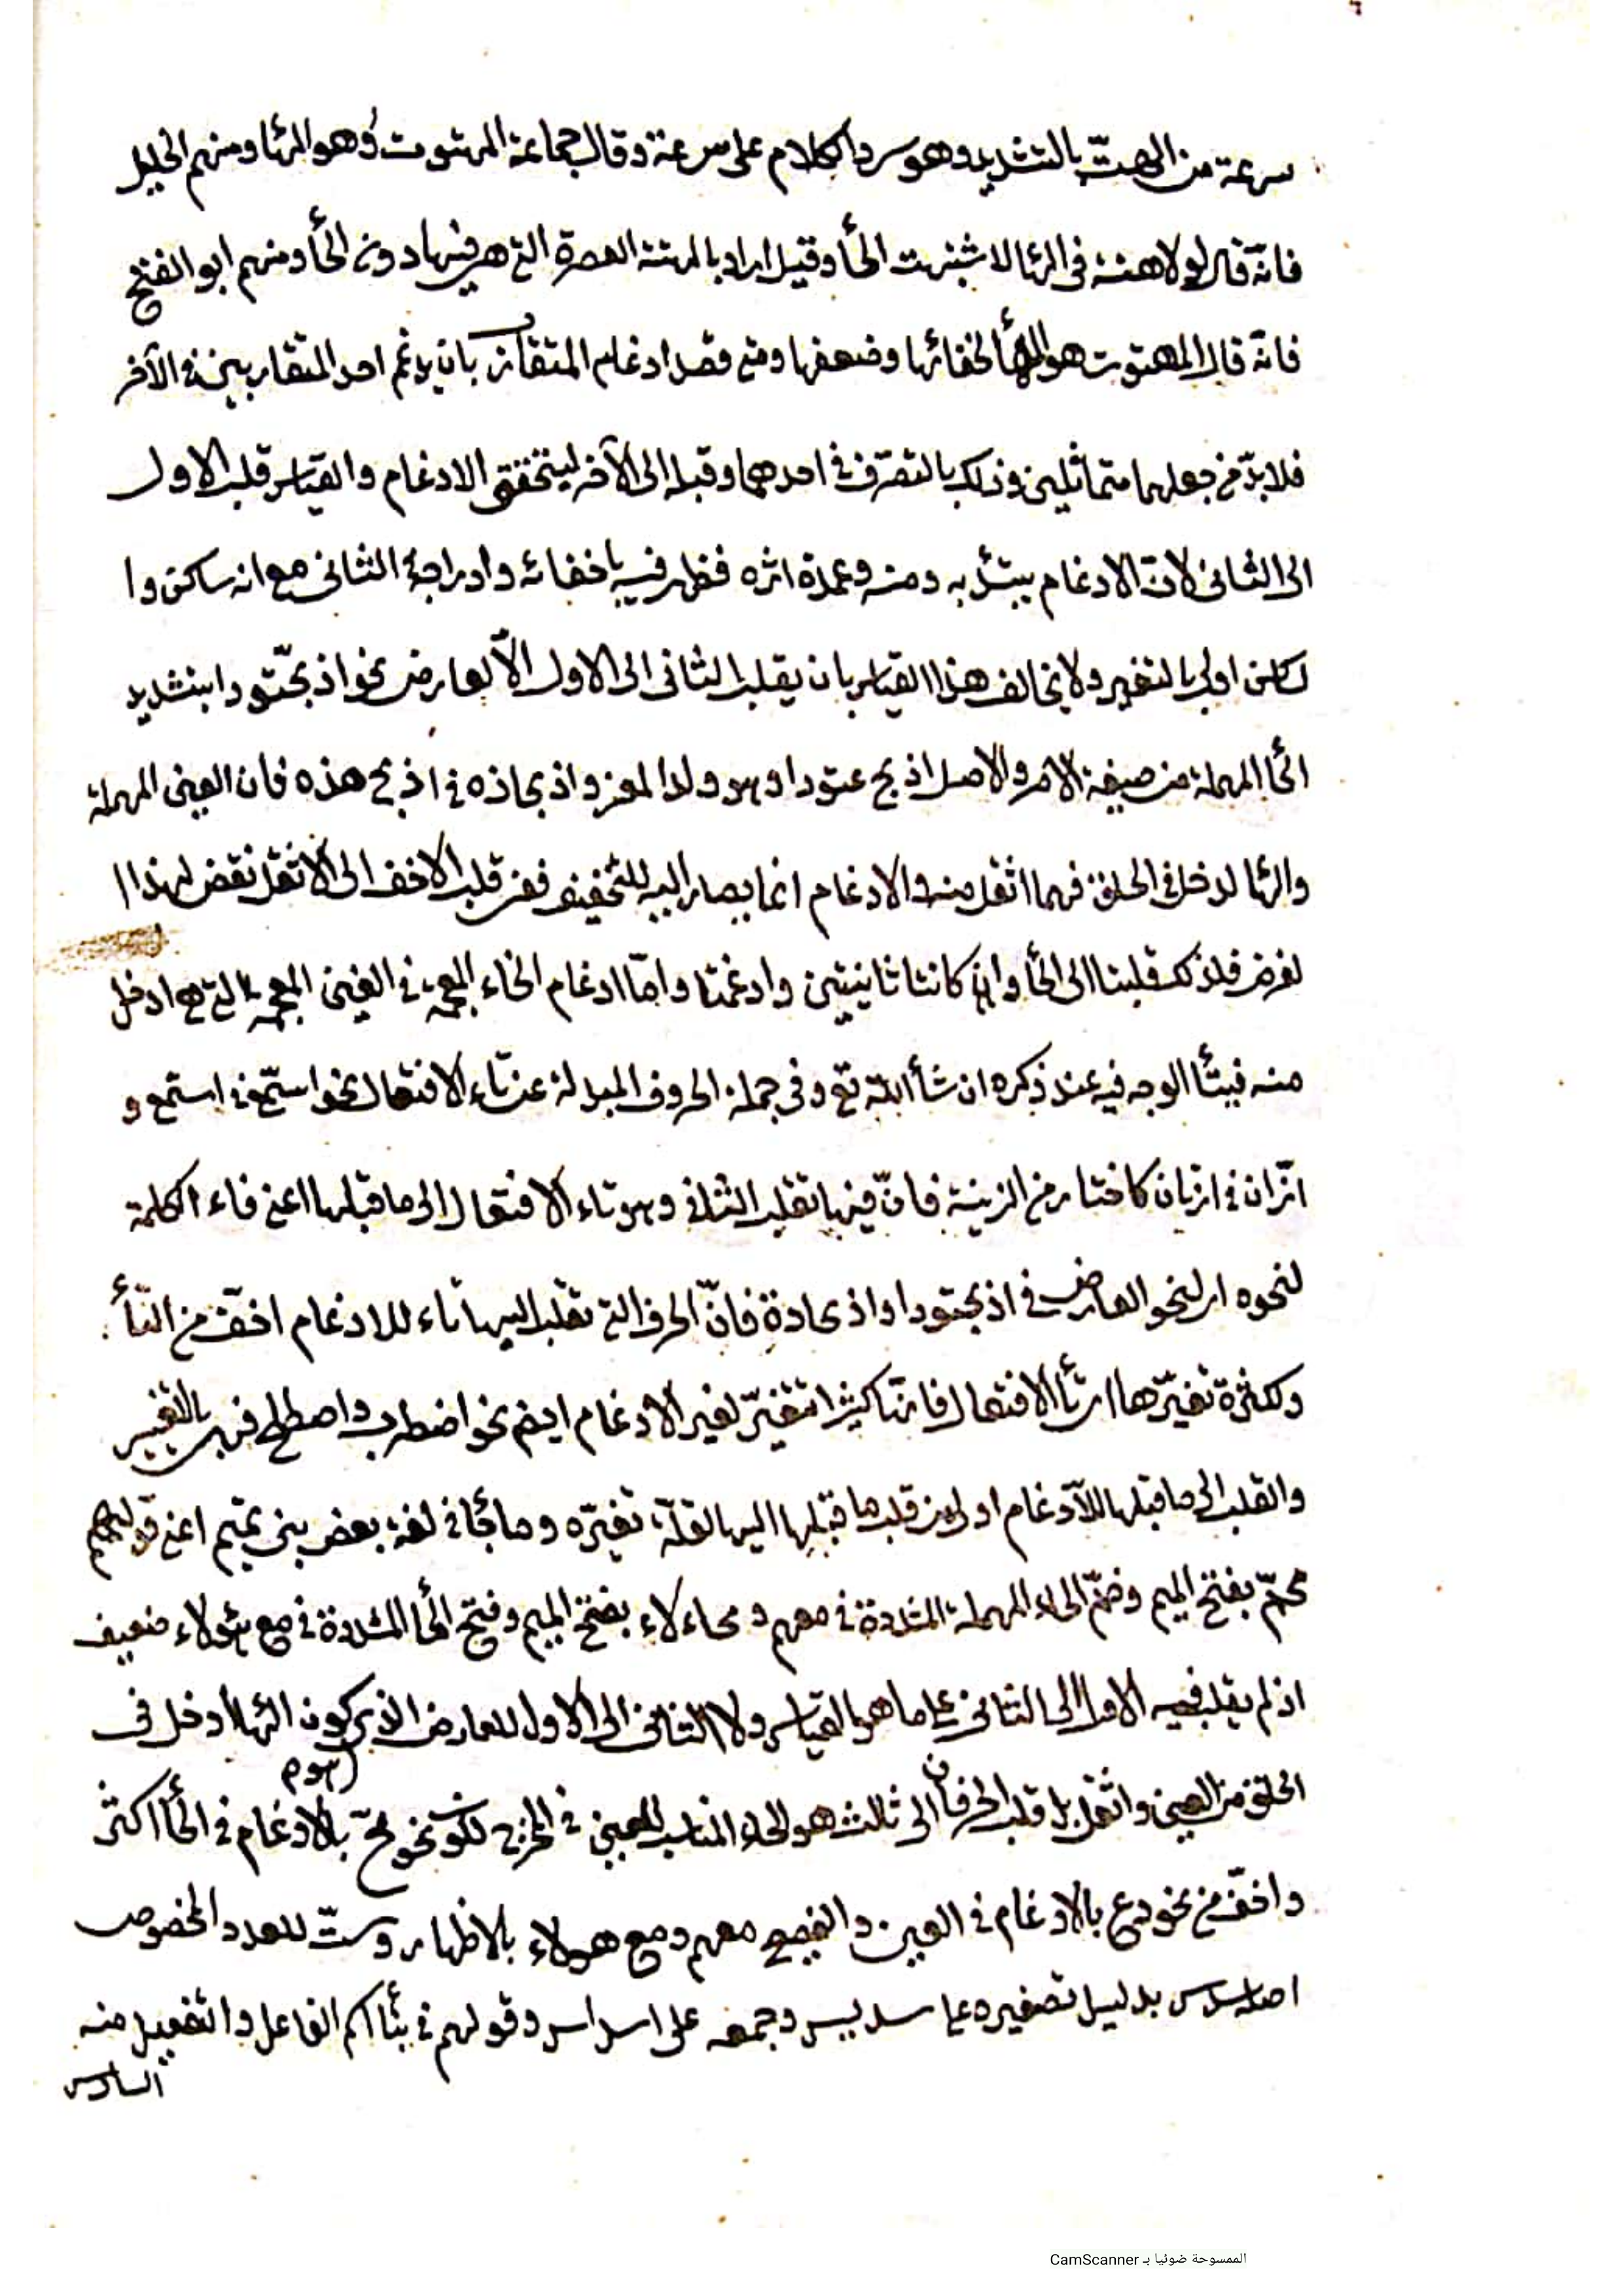 سرعة من الهتّ بالتشديد وهو سرد الكلام على سرعة وقال جماعة المهتوت وهو الهاء ومنهم الخليل
فانّه قال لولا هتة فى الهاء لاشبهت الحاء وقيل اراد بالهتة العصرة التى هى فيها دون الحاء ومنهم ابو الفتح
فانّه قال المهتوت هو الهاء لخفائها وضعفها ومتى قصد ادغام المتقارب بان يدغم احد المتقاربين فى الآخر
فلا بدّ من جعلهما متماثلين وذلك بالتصرّف فى احدهما وقبله الى الآخر ليتحقق الادغام والقياس قلب الاول
الى الثانى لانّ الادغام يبتدئ به ومنه وعمدة اثره فظهر فيه باخفائه وادراجه فى الثانى مع انه ساكن وا
لساكن اولى بالتغيير ولا يخالف هذا القياس بان يقلب الثانى الى الاول الّا لعارض نحو اذبحّتودا بتشديد
الحاء المهملة من صيغة الامر والاصل اذبح عتودا وهو ولد المعز واذبحاذه فى اذبح هذه فان العين المهملة
والهاء لدخل فى الحلق فهما اثقل منه والادغام انما يصار اليه للتخفيف ففى قلب الاخف الى الاثقل نقض لهذا ا
لغرض فلذلك قلبنا الى الحاء وان كانتا ثانيتين وادغمتا وامّا ادغام الخاء المعجمة فى الغين المعجمة التى هى ادخل
منه فيتأ الوجه فيه عند ذكره ان شاء الله تع وفى جملة الحروف المبدلة عن تاء الافتعال نحو استمع فى استمع و
ازّان فى ازتان كاختار من الزينة فانّ فيها تقلب الثانى وهو تاء الافتعال الى ما قبلها اعنى فاء الكلمة
لنحوه اى لنحو العارض فى اذبحتودا واذبحاذه فانّ الحرف التى تقلب اليها تاء للادغام اخفّ من التاء
ولكثرة تغيّرها اى تاء الافتعال فانها كثيرا تتغيّر لغير الادغام ايضم نحو اضطرب واصطلح فهى بالتغيير
والقلب الى ما قبلها للادغام اولى من قلب ما قبلها اليها لقلّة تغيّره وما جاء فى لغة بعض بنى تميم اعنى قولهم
محّم بفتح الميم وضمّ الحاء المهملة المشددة فى معهم و محاءلاء بفتح الميم وفتح الحاء المشددة فى مع هؤلاء ضعيف
اذ لم يقلب فيه الاول الى الثانى على ما هو القياس ولا الثانى الى الاول للعارض الذى كون الهاء ادخل فى
الحلق من العين واثقل بل قلب الحرفان الى ثالث هو الحاء المناسب للعين فى المخرج لكون نحو محّ بالادغام فى الحاء اكثر
واخفّ من نحو دع بالادغام فى العين والفصيح معهم ومع هولاء بالاظهار وستّ للعدد المخصوص
اصله سدس بدليل تصغيره على سديس وجمعه على اسداس وقولهم فى بناء اسم الفاعل والتفعيل منه
السادس
الممسوحة ضوئيا بـ CamScanner